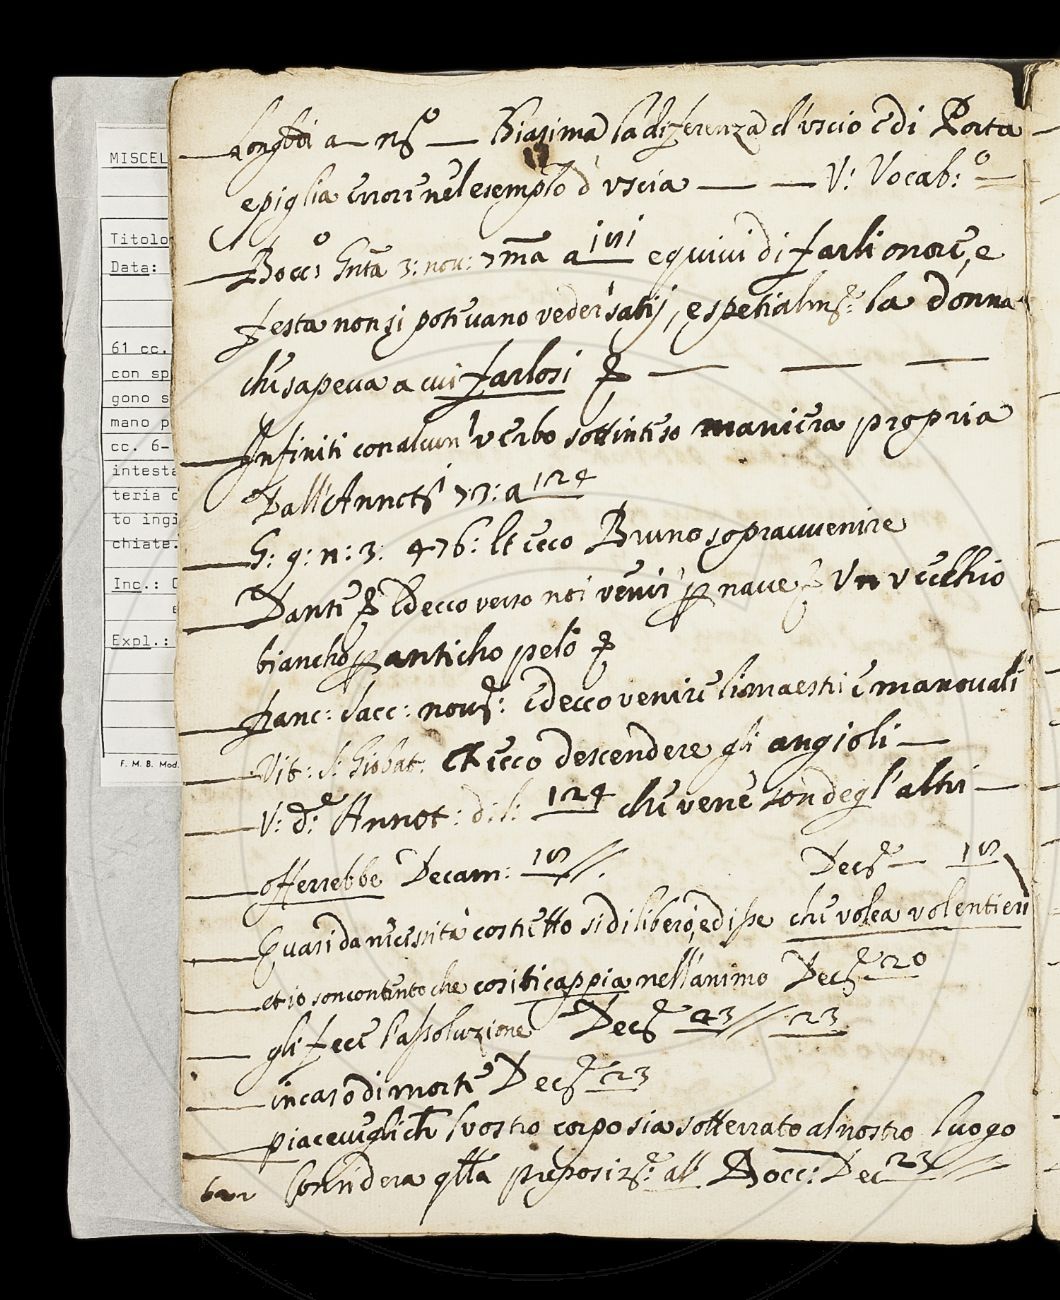 MISCEL
Titolo
Data:
61 cc.
con sp
gono s
mano p
cc. 6-
intesta
teria d
to ingi
chiate.
Inc.:
Expl.:
F. M. B. Mod.
a Biasima la diferenza d'uscio e di Porta
e piglia errore nel esemplo d'uscia V: Vocab:º
Bocc: 3: nov: a 151 e quivi di farli onore, e
festa non si potevano veder satij, e spetialm: la donna
che sapeva a cui farlosi
Infiniti con alcun verbo sottinteso maniera propria
Dall' 73: a 124
G: 9: n: 3: 476: Et ecco Bruno sopravvenire
Dante Ed ecco verso noi venir p nave Un vecchio
biancho p anticho pelo
franc: Sacc: nov: Ed ecco venire li maestri e manovali
Vit: S: Giobat: Et ecco descendere gli angioli
V: d:e Annot: di l: 124 che vene son degl'altri
offerrebbe Decam: 15 Dec 15
Quasi da necessità costretto si diliberò, e disse che volea volentieri
et io son contento che cosi ti cappia nell'animo Dec 20
gli fece l'assoluzione Dec 23 23
in caso di morte Dec 23
piacevugli che l vostro corpo sia sotterrato al nostro luogo
Considera qlla preposiz: al Bocc: Dec 23